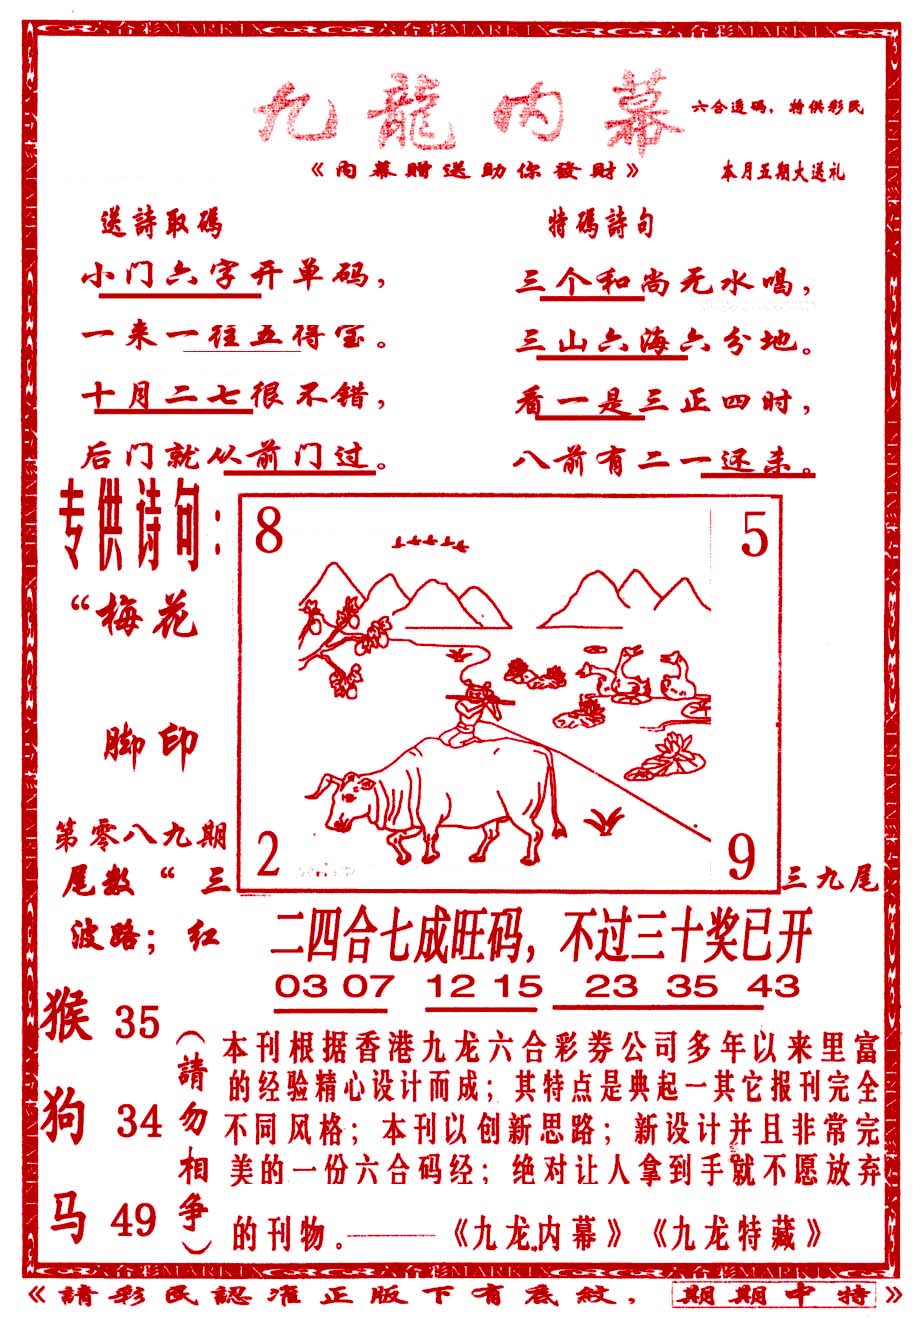 六合彩MARK
九龍内幕
六合透码，特供彩民
《内幕赠送助你發财》
本月五期大送礼
送詩取碼
小门六字开单码，
一来一往五得宝。
十月二七很不错，
后门就从前门过。
特碼詩句
三个和尚无水喝，
三山六海六分地。
看一是三正四时，
八前有二一还来。
专供诗句：
“梅花
脚印
第零八九期
尾数“三
三九尾
波路；红
8
5
2
9
二四合七成旺码，不过三十奖已开
03 07 12 15 23 35 43
猴 35
狗 34
马 49
（請勿相争）
本刊根据香港九龙六合彩券公司多年以来里富
的经验精心设计而成；其特点是典起一其它报刊完全
不同风格；本刊以创新思路；新设计并且非常完
美的一份六合码经；绝对让人拿到手就不愿放弃
的刊物。——《九龙内幕》《九龙特藏》
《請彩民認准正版下有底紋，期期中特》